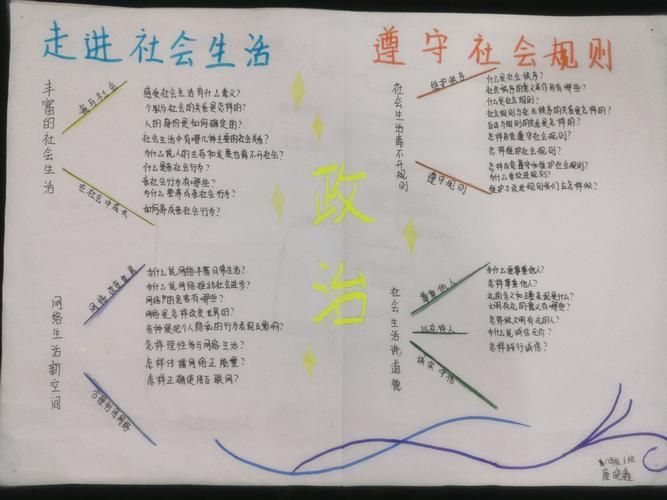 走进社会生活
丰富的社会生活
我与社会
感受社会生活有什么意义?
个人与社会的关系是怎样的?
人的身份是如何确定的?
社会生活中有哪几种主要的社会关系?
为什么说人的生存和发展也离不开社会?
在社会中成长
什么是亲社会行为?
亲社会行为有哪些?
为什么要养成亲社会行为?
如何养成亲社会行为?
网络生活新空间
网络改变世界
为什么说网络丰富日常生活?
为什么说网络推动社会进步?
网络的危害有哪些?
网络是怎样改变世界的?
合理利用网络
怎样理性参与网络生活?
怎样传播网络正能量?
怎样正确使用互联网?
政治
遵守社会规则
社会生活离不开规则
维护秩序
什么是社会秩序?
什么是社会规则?
社会规则与社会秩序的关系是怎样的?
自由与规则的关系是怎样的?
怎样自觉遵守社会规则?
怎样维护社会规则?
遵守规则
怎样自觉遵守和维护社会规则?
为什么要改进规则?
社会生活讲道德
尊重他人
为什么要尊重他人?
怎样尊重他人?
文明有礼的意义有哪些?
以礼待人
怎样做文明有礼的人?
诚实守信
为什么说诚信无价?
怎样践行诚信?